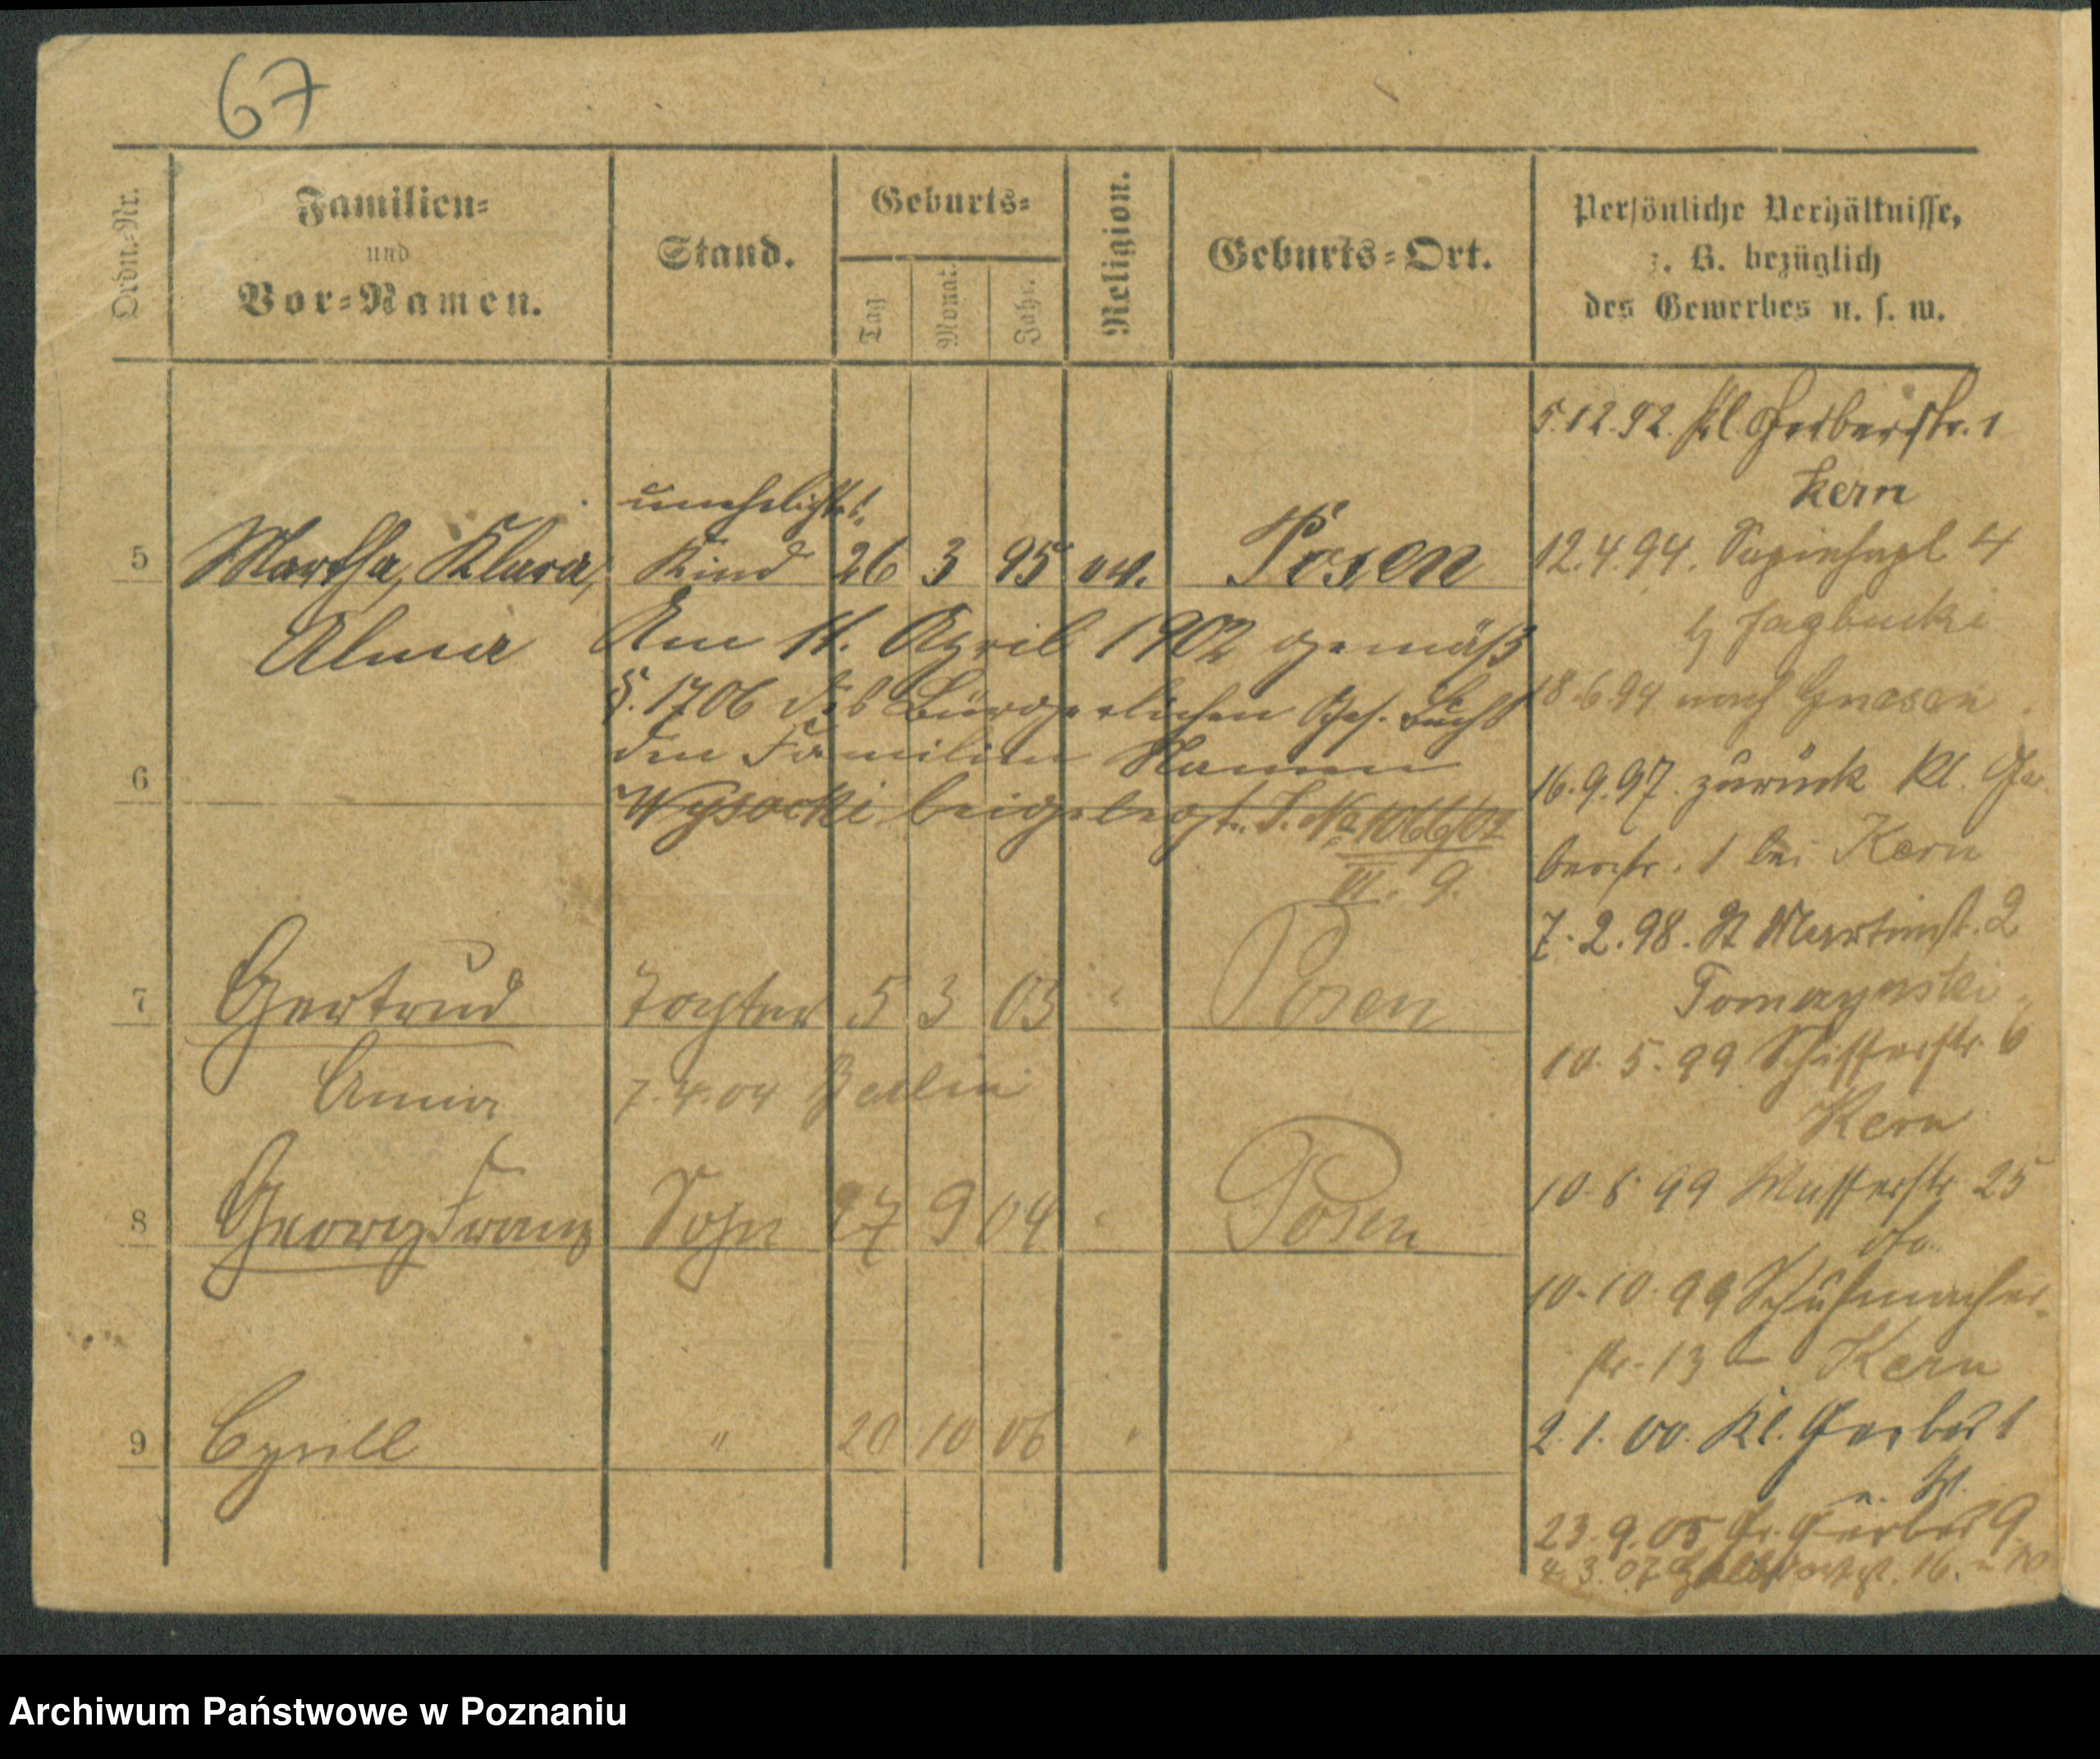 67
Ordn.-Nr.
Familien-
und
Vor-Namen.
Stand.
Geburts-
Tag
Monat.
Jahr.
Religion.
Geburts-Ort.
Persönliche Verhältnisse,
z. B. bezüglich
des Gewerbes u. s. w.
uneheliches
5 Martha, Klara, Kind 26 3 95 ev. Posen
Alma
Am 11. April 1902 gemäß
§. 1706 des Bürgerlichen Ges. Buchs
den Familien Namen
6
Wysocki beigelegt. J. No
VI. 9.
7 Gertrud Tochter 5 3 03 " Posen
Anna 7.4.04 Berlin
8 Georg Franz Sohn 27 9 04 " Posen
9 Cyrill " 20 10 06 "
5.12.92. Kl. Gerberstr. 1
Kern
12.4.94. Sapiehapl 4
18.6.94 nach Gnesen
16.9.97. zurück Kl. Ger-
berstr. 1 bei Kern
7.2.98. St Martinst. 2
10.5.99 Schifferstr. 6
Kern
10.8.99 Wasserstr 25
dto.
10.10.99 Schuhmacher-
str. 13 Kern
2.1.00. Kl. Gerber 1
23.9.05 Gr. Gerber 9
4.3.07 16.
Archiwum Państwowe w Poznaniu